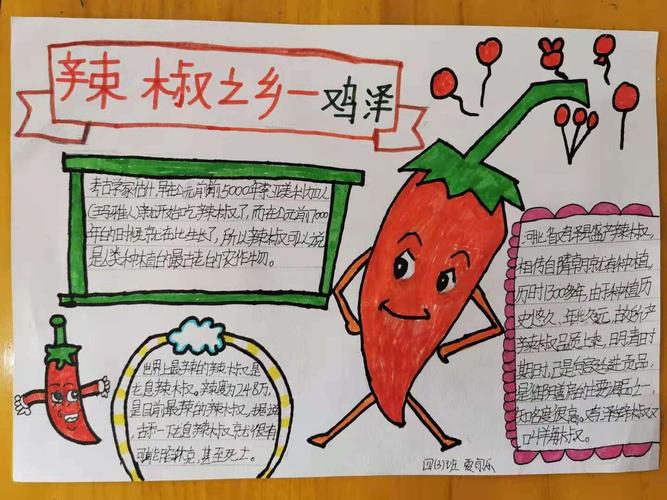 辣椒之乡—鸡泽
考古学家估计,早在公元前前5000年,
(玛雅人)就开始吃辣椒了,而在公元前7000
年的时候就在此生长了,所以辣椒可以说
是人类种植的最古老的农作物。
世界上最辣的辣椒是
鬼息辣椒。辣度为248万,
是目前最辣的辣椒,据说,
吃一下鬼息辣椒,就很有
可能陷休克,甚至死亡。
河北省鸡泽县盛产辣椒,
相传自隋朝就有种植,
历时1300多年,由于种植历
史悠久,年代久远,故所产
辣椒品质上乘,明清时
期时,已是向宫廷进贡品,
是御膳房的主要调品之一,
知名度很高。鸡泽辣椒又
叫羊角椒。
四(3)班